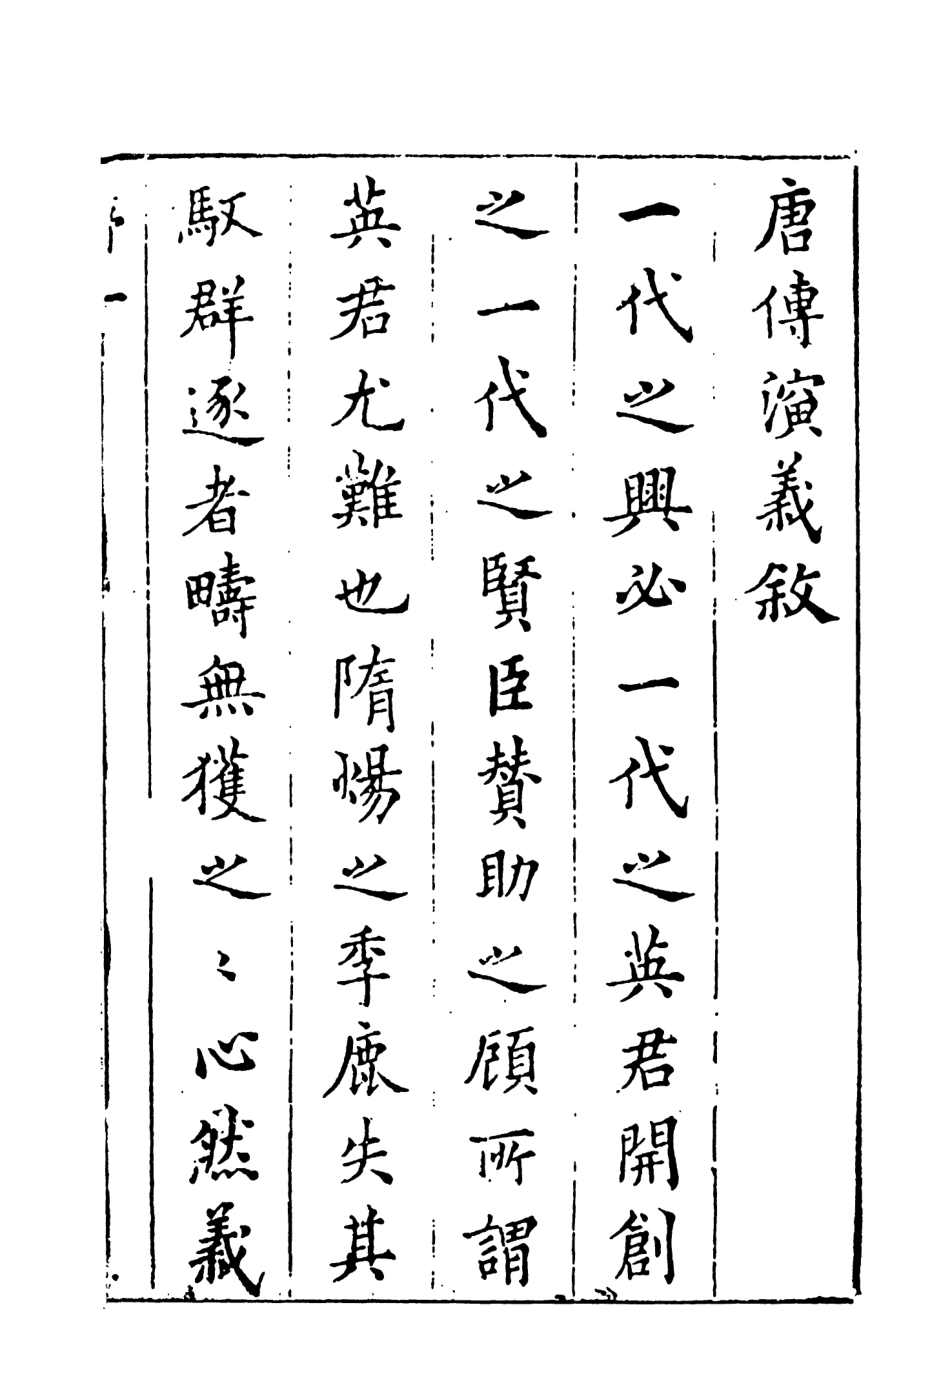 唐傳演義敘
一代之興必一代之英君開創
之一代之賢臣賛助之頋所謂
英君尤難也隋煬之季鹿失其
馭群逐者疇無獲之〻心然義